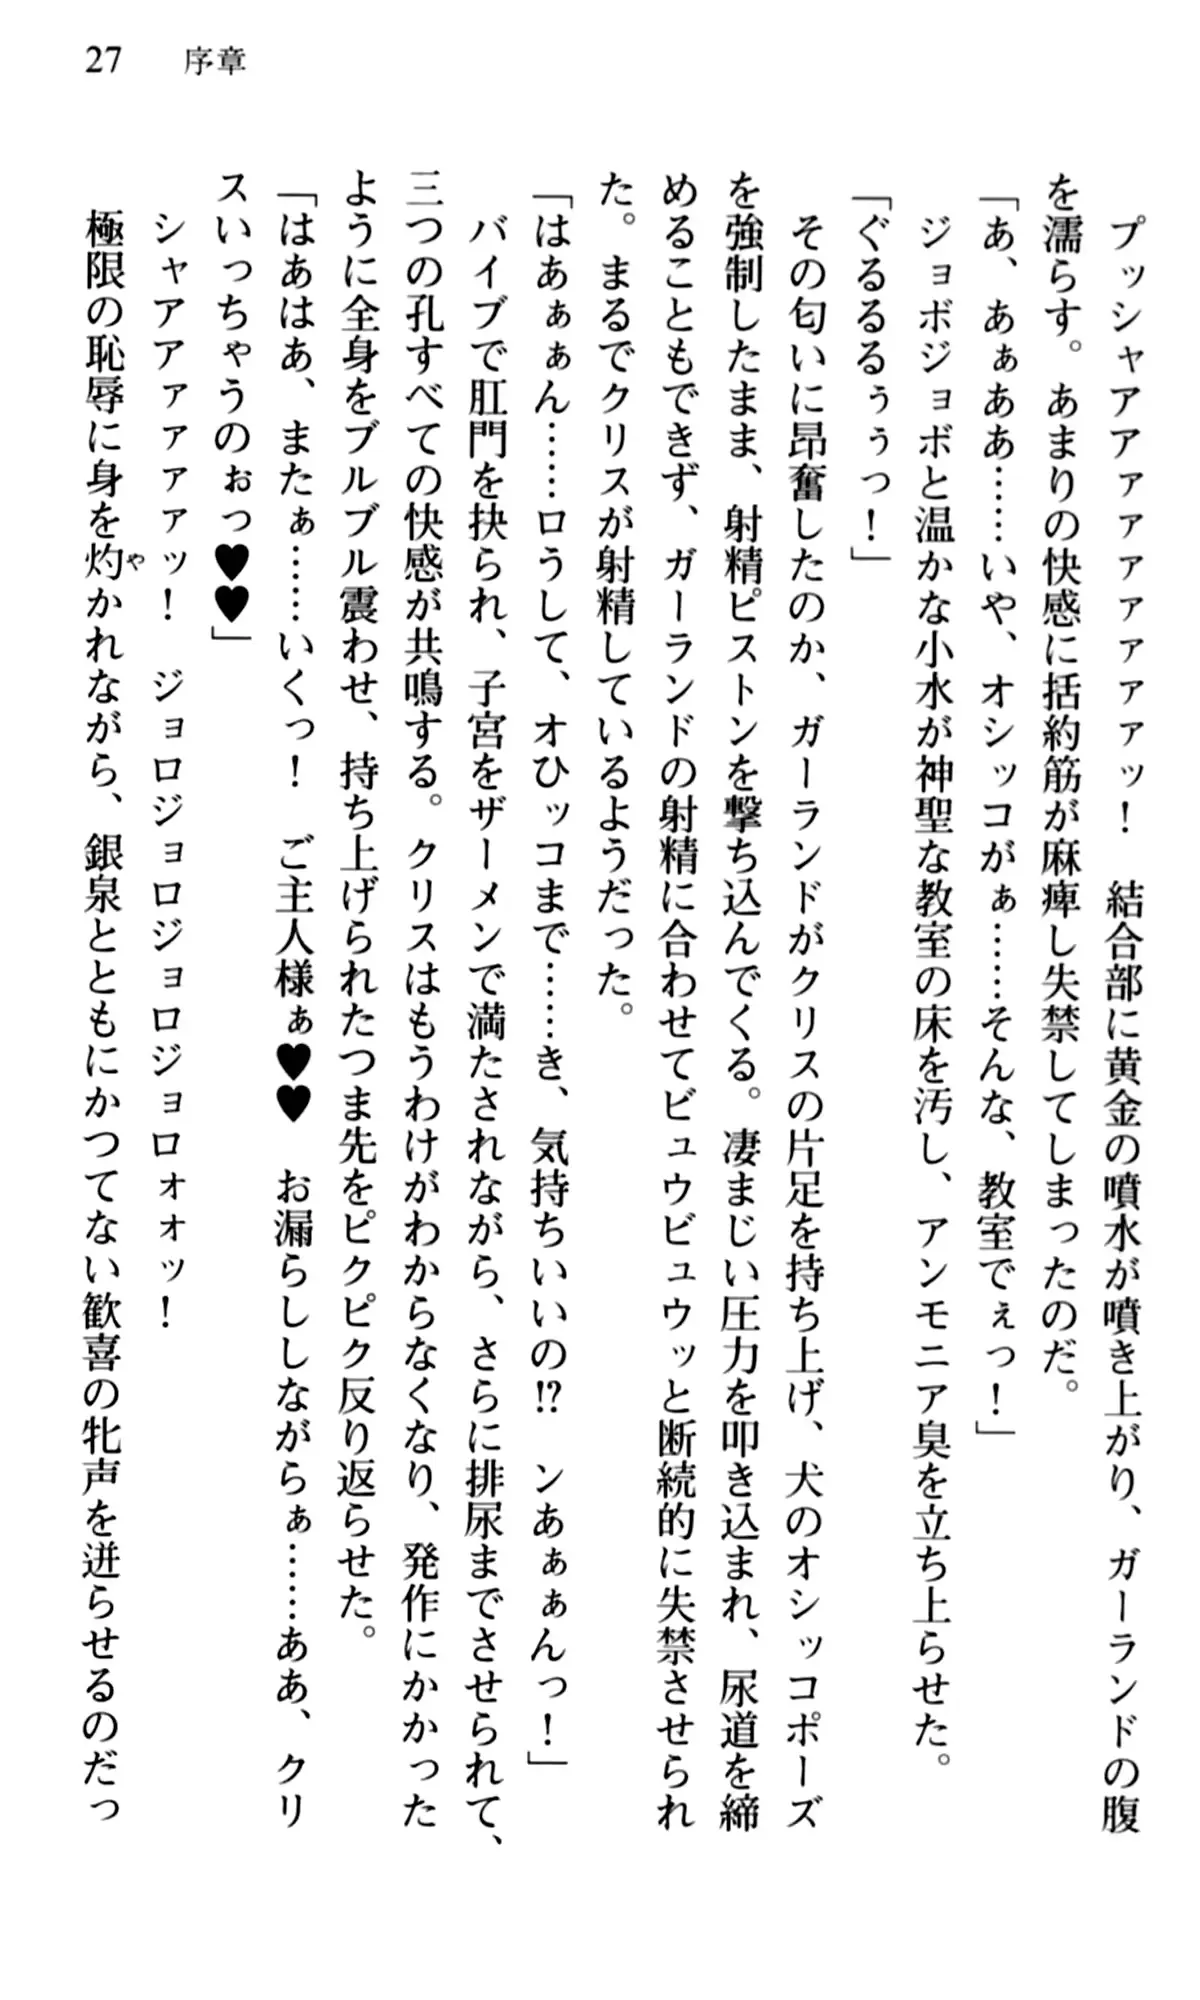 27 序章
プッシャアアァァァァァァァッ！　結合部に黄金の噴水が噴き上がり、ガーランドの腹
を濡らす。あまりの快感に括約筋が麻痺し失禁してしまったのだ。
「あ、あぁああ……いや、オシッコがぁ……そんな、教室でぇっ！」
ジョボジョボと温かな小水が神聖な教室の床を汚し、アンモニア臭を立ち上らせた。
「ぐるるるぅぅっ！」
その匂いに昂奮したのか、ガーランドがクリスの片足を持ち上げ、犬のオシッコポーズ
を強制したまま、射精ピストンを撃ち込んでくる。凄まじい圧力を叩き込まれ、尿道を締
めることもできず、ガーランドの射精に合わせてビュウビュウッと断続的に失禁させられ
た。まるでクリスが射精しているようだった。
「はあぁぁん……ロうして、オひッコまで……き、気持ちいいの⁉　ンあぁぁんっ！」
バイブで肛門を抉られ、子宮をザーメンで満たされながら、さらに排尿までさせられて、
三つの孔すべての快感が共鳴する。クリスはもうわけがわからなくなり、発作にかかった
ように全身をブルブル震わせ、持ち上げられたつま先をピクピク反り返らせた。
「はあはあ、またぁ……いくっ！　ご主人様ぁ♥♥　お漏らししながらぁ……ああ、クリ
スいっちゃうのぉっ♥♥」
シャアアァァァァッ！　ジョロジョロジョロジョロォォッ！
極限の恥辱に身を灼かれながら、銀泉とともにかつてない歓喜の牝声を迸らせるのだっ
や